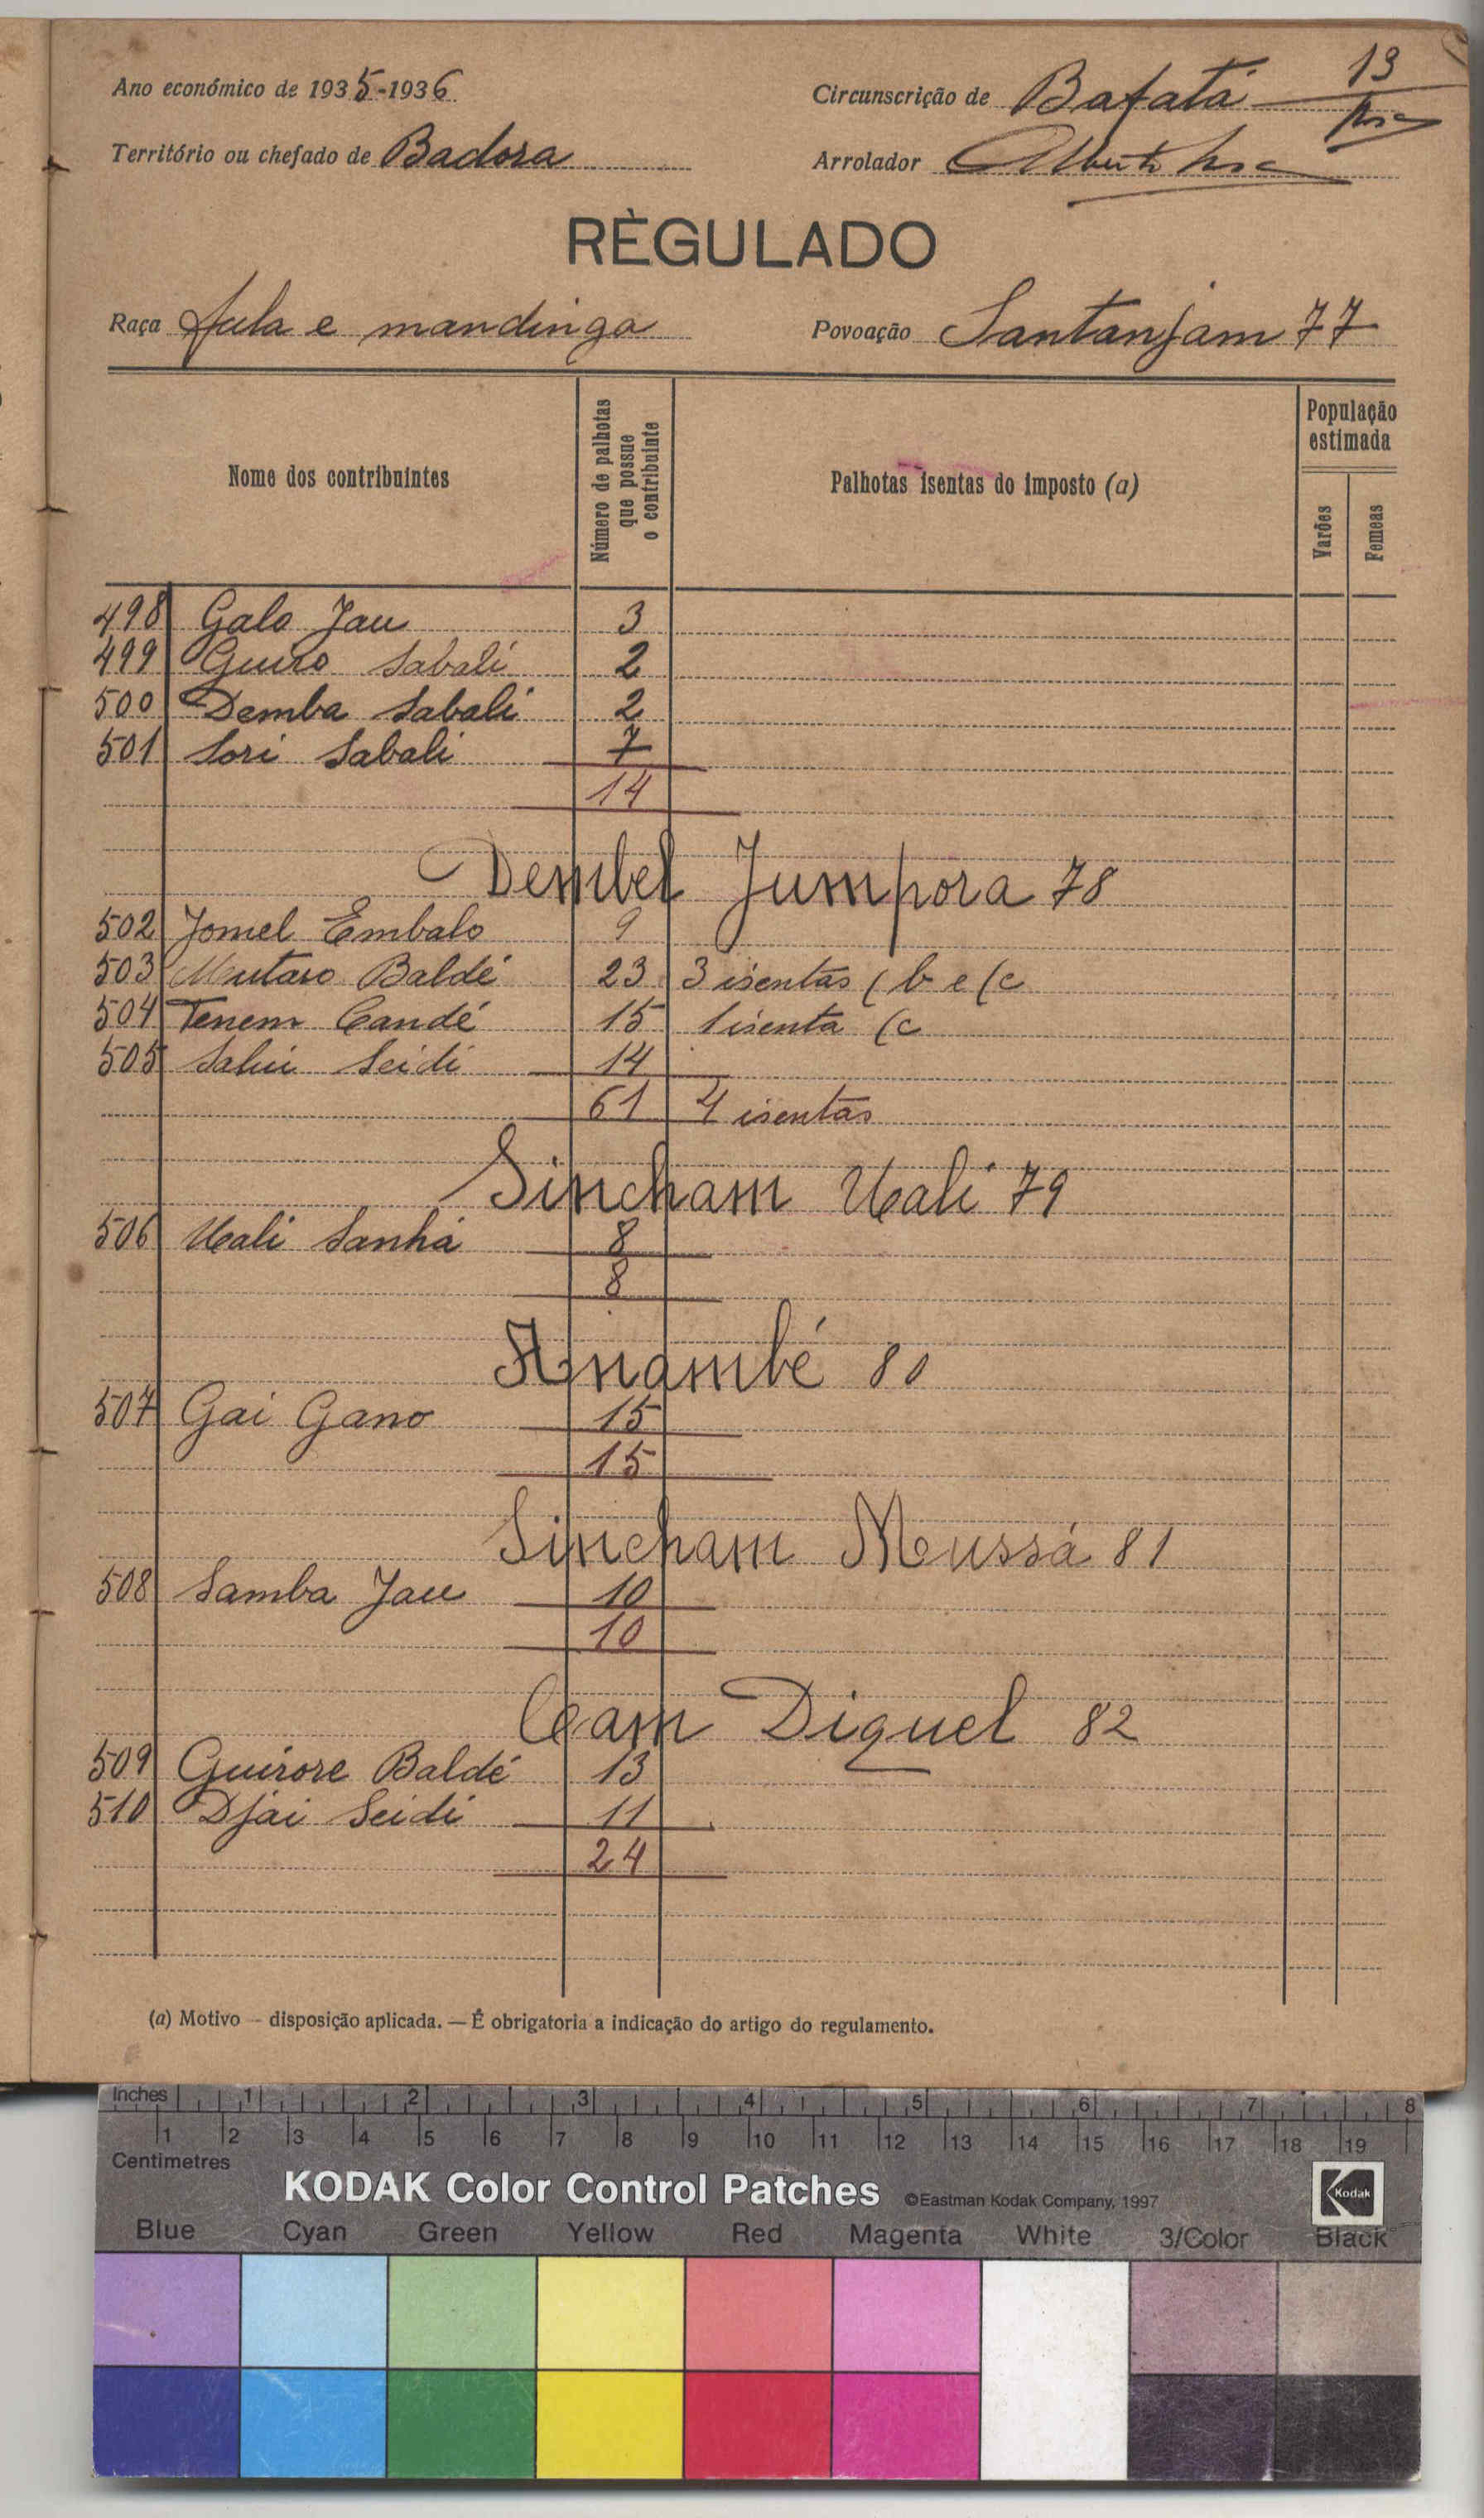 Ano económico de 1935-1936
Circunscrição de Bafatá 13
Território ou chefado de Badora
Arrolador Alberto
RÈGULADO
Raça fula e mandinga
Povoação Santanjam 77
Nome dos contribuintes
Número de palhotas que possue o contribuinte
Palhotas isentas do imposto (a)
População estimada
Varões
Femeas
498 Galo Jau 3
499 Guiro Sabali 2
500 Demba Sabali 2
501 Sori Sabali 7
14
Dembel Jumpora 78
502 Jomel Embalo 9
503 Mutaro Baldé 23 3 isentas (b e (c
504 Tenem Candé 15 1 isenta (c
505 Seidi 14
61 4 isentas
Sincham Uali 79
506 Uali Sanhá 8
8
Anambé 80
507 Gai Gano 15
15
Sincham Mussá 81
508 Samba Jau 10
10
Cam Diquel 82
509 Guirore Baldé 13
510 Djai Seidi 11
24
(a) Motivo — disposição aplicada. — É obrigatoria a indicação do artigo do regulamento.
Inches 1 2 3 4 5 6 7 8
1 2 3 4 5 6 7 8 9 10 11 12 13 14 15 16 17 18 19
Centimetres
KODAK Color Control Patches ©Eastman Kodak Company, 1997 Kodak
Blue Cyan Green Yellow Red Magenta White 3/Color Black